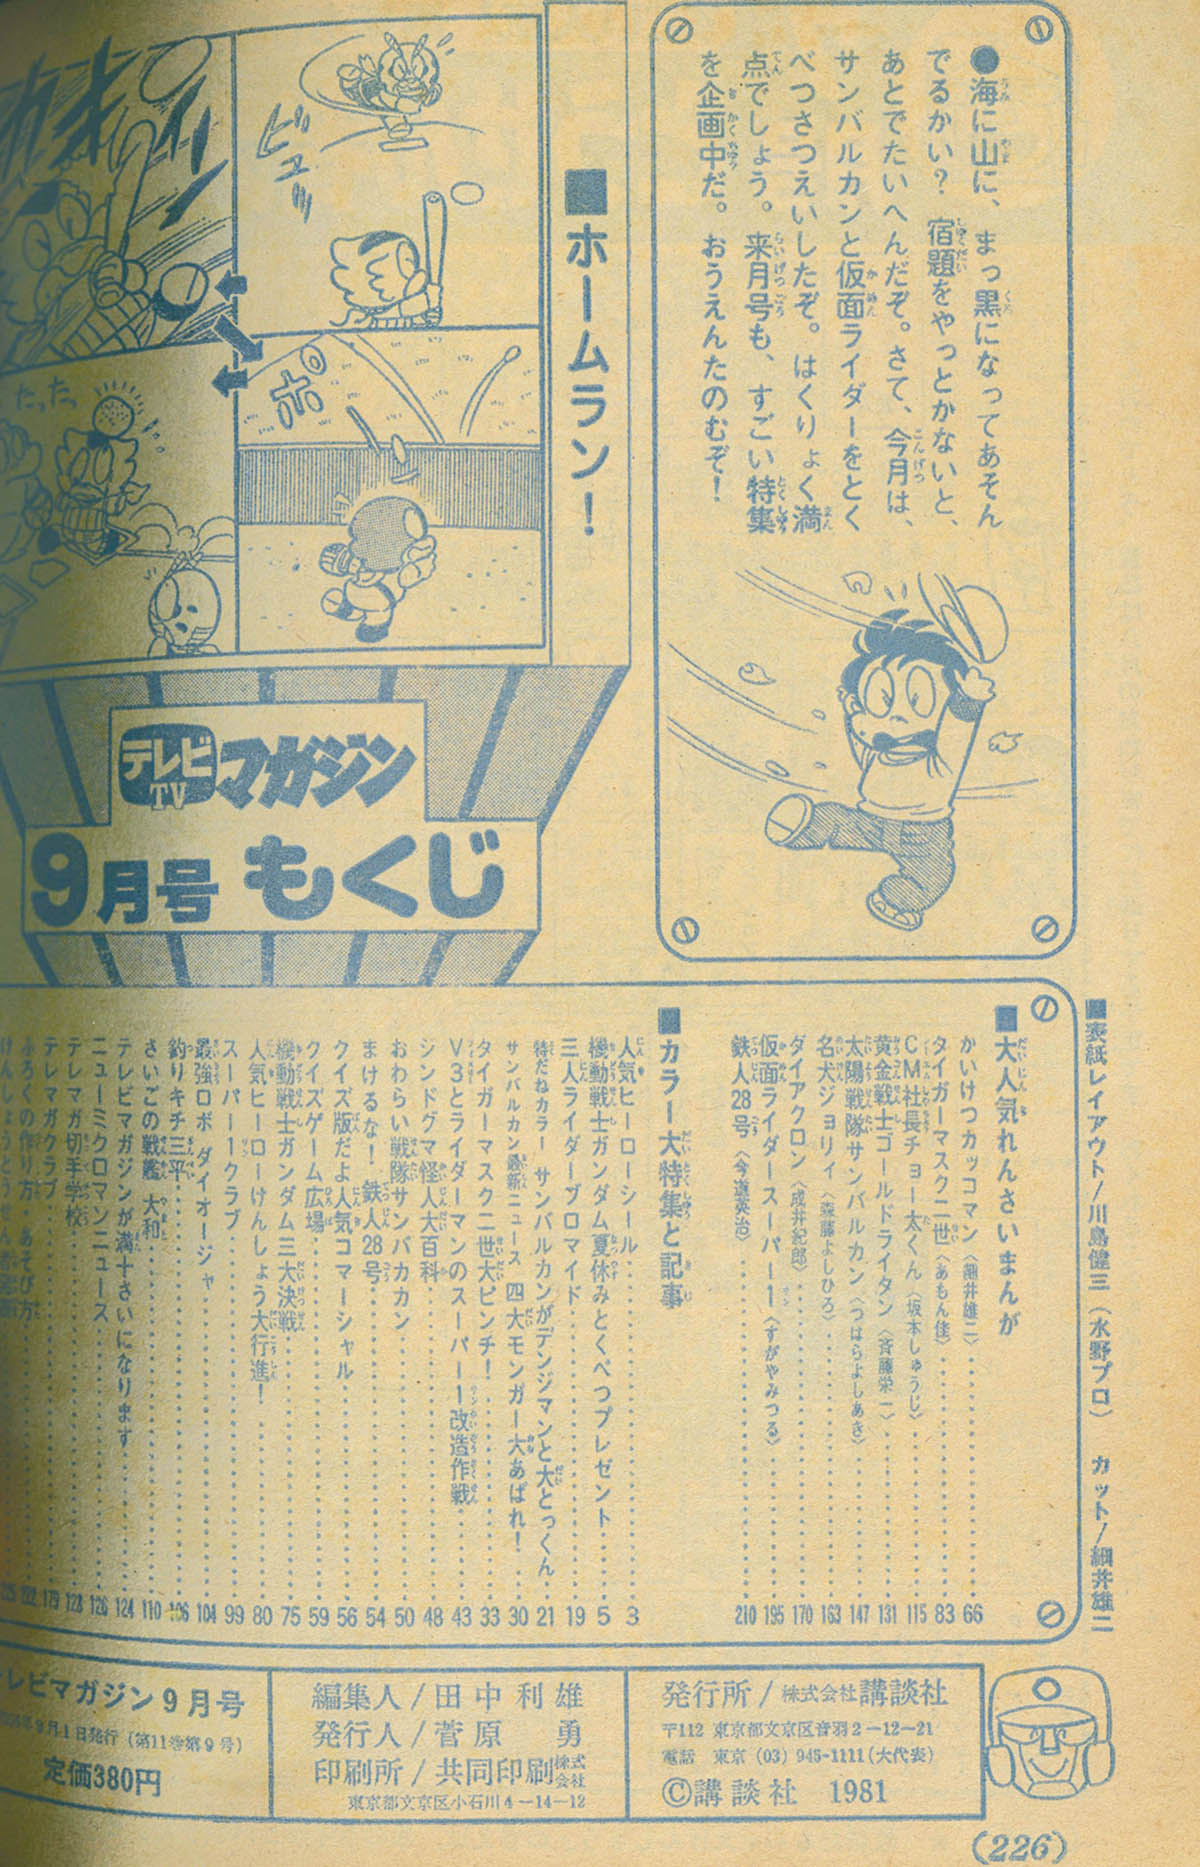 ●海に山に、まっ黒になってあそん
でるかい？宿題をやっとかないと、
あとでたいへんだぞ。さて、今月は、
サンバルカンと仮面ライダーをとく
べつさつえいしたぞ。はくりょく満
点でしょう。来月号も、すごい特集
を企画中だ。おうえんたのむぞ！
■ホームラン！
ビュッ
ポ
たったっ
テレビマガジン
TV
9月号 もくじ
■表紙レイアウト/川島健三（水野プロ） カット/細井雄二
■大人気れんさいまんが
かいけつカッコマン〈細井雄二〉……66
タイガーマスク二世〈あもん佳〉……83
CM社長チョー太くん〈坂本しゅうじ〉……115
黄金戦士ゴールドライタン〈斉藤栄一〉……131
太陽戦隊サンバルカン〈つはらよしあき〉……147
名犬ジョリィ〈森藤よしひろ〉……163
ダイアクロン〈成井紀郎〉……170
仮面ライダースーパー1〈すがやみつる〉……195
鉄人28号〈今道英治〉……210
■カラー大特集と記事
人気ヒーローシール……3
機動戦士ガンダム夏休みとくべつプレゼント……5
三人ライダーブロマイド……19
特だねカラー サンバルカンがデンジマンと大とっくん……21
サンバルカン最新ニュース 四大モンガー大あばれ！……30
タイガーマスク二世大ピンチ！……33
V3とライダーマンのスーパー1改造作戦……43
シンドグマ怪人大百科……48
おわらい戦隊サンバカカン……50
まけるな！鉄人28号……54
クイズ版だよ人気コマーシャル……56
クイズゲーム広場……59
機動戦士ガンダム三大決戦……75
人気ヒーローけんしょう大行進！……80
スーパー1クラブ……99
最強ロボ ダイオージャ……104
釣りキチ三平……106
さいごの戦艦 大和……110
テレビマガジンが満十さいになります……124
ニューミクロマンニュース……126
テレマガ切手学校……128
テレマガクラブ……179
ふろくの作り方・あそび方……192
発行所/株式会社講談社
〒112 東京都文京区音羽2-12-21
電話 東京(03)945-1111(大代表)
©講談社 1981
編集人/田中利雄
発行人/菅原 勇
印刷所/共同印刷株式会社
東京都文京区小石川4-14-12
テレビマガジン9月号
年9月1日発行（第11巻第9号）
定価380円
(226)